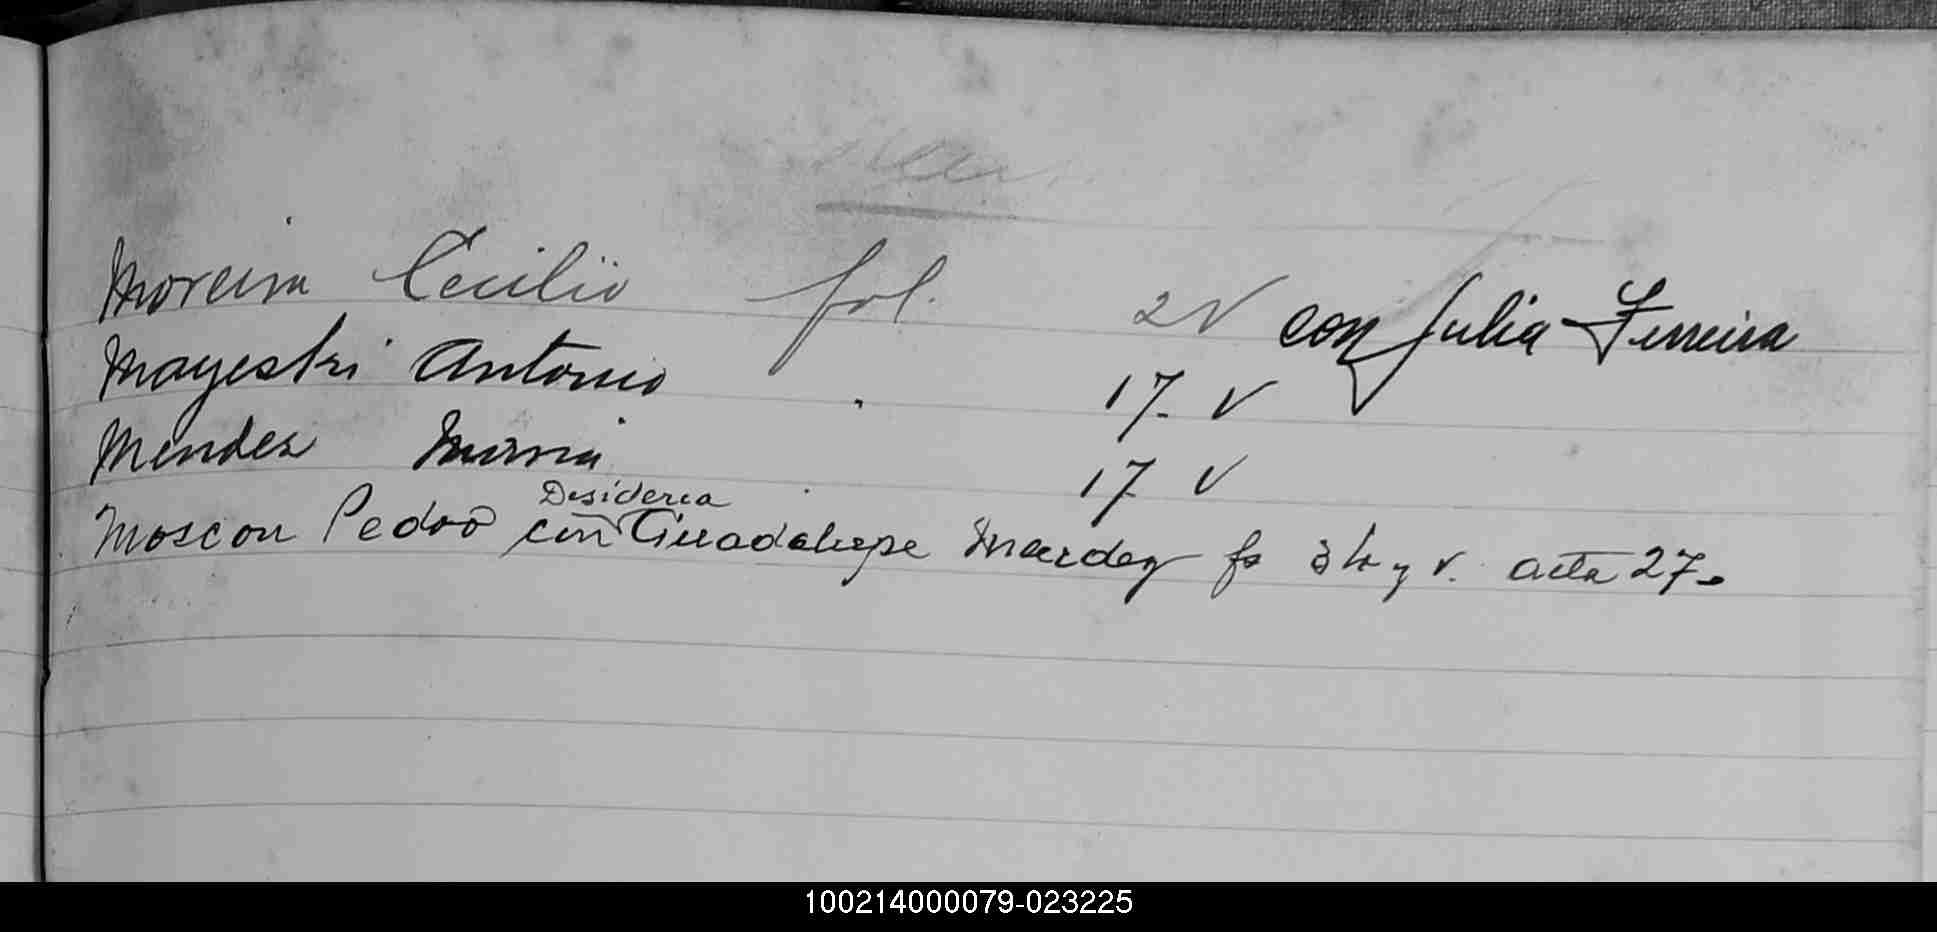 Moreira Cecilio fol. 2 V con Julia Ferreira
Mayestri Antonio 17. V
Mendez Maria 17 V
Desideria
Moscon Pedro con Guadalupe fs 34 y v. acta 27.
100214000079-023225